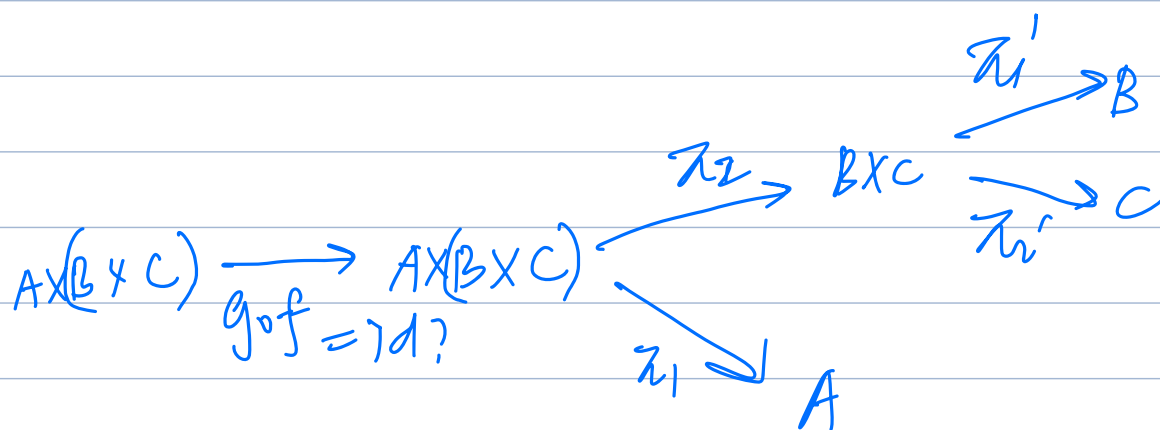 π1' B
π2 B×C
π2' C
A×(B×C) A×(B×C)
g∘f = id?
π1
A